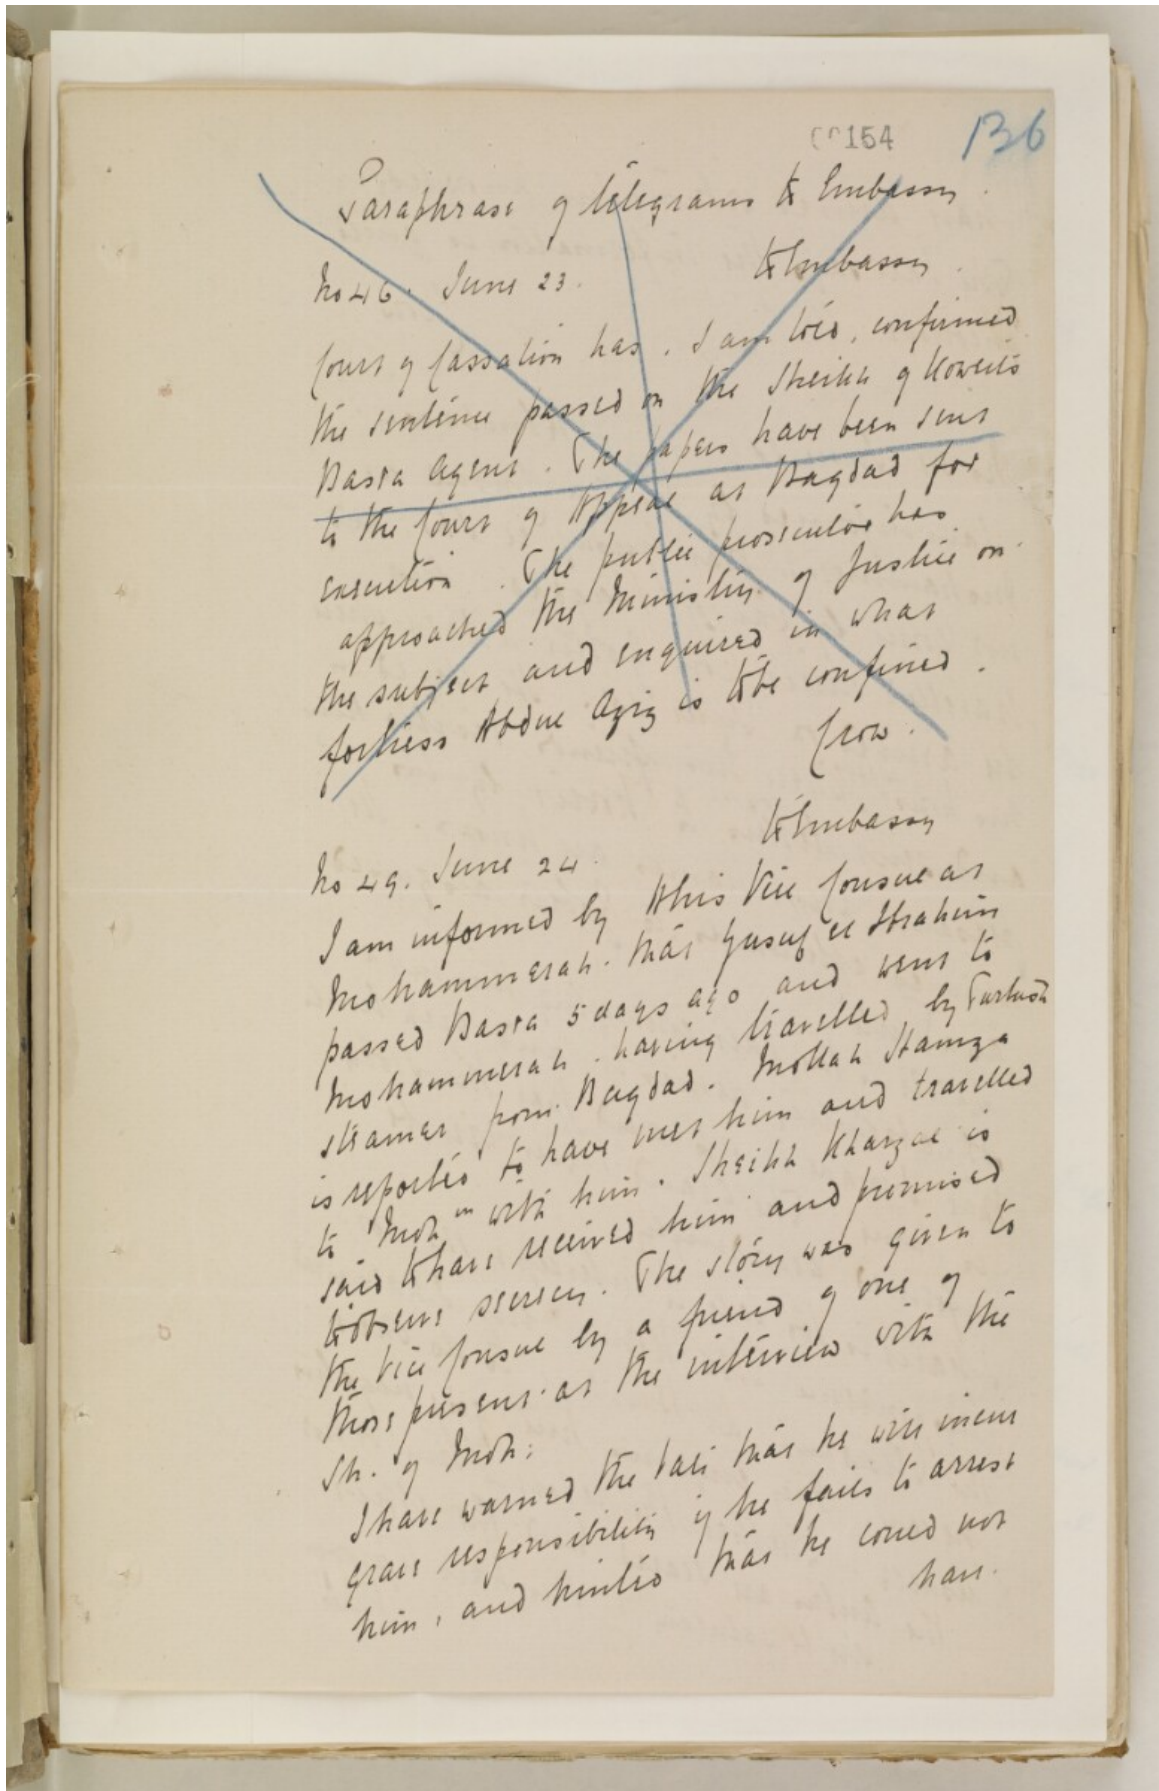 154
136
Paraphrase of telegrams to Embassy.
To Embassy.
No 46. June 23.
Court of Cassation has, I am told, confirmed
the sentence passed on the Sheikh of Koweit's
Basra Agent. The papers have been sent
to the Court of Appeal at Bagdad for
execution. The public prosecutor has
approached the Ministry of Justice on
the subject and enquired in what
fortress Abdul Aziz is to be confined.
Crow.
To Embassy
No 49. June 24.
I am informed by this Vice Consul at
Mohammerah that Yusuf el Ibrahim
passed Basra 5 days ago and went to
Mohammerah having travelled by Turkish
steamer from Bagdad. Mollah Hamza
is reported to have met him and travelled
to Moh<sup>m</sup> with him. Sheikh Khazal is
said to have received him and promised
to observe secrecy. The story was given to
the Vice Consul by a friend of one of
those present at the interview with the
Sh. of Moh:
I have warned the Vali that he will incur
grave responsibility if he fails to arrest
him, and hinted that he could not
have.